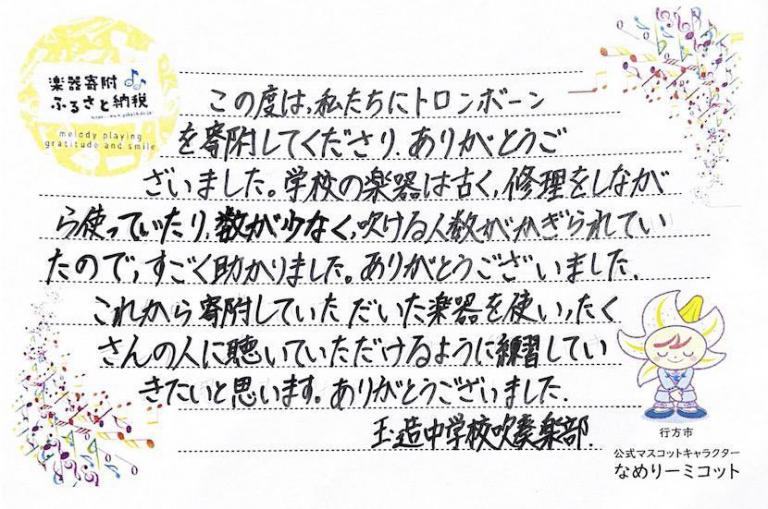 楽器寄附
ふるさと納税
melody playing
gratitude and smile
この度は、私たちにトロンボーン
を寄附してくださり、ありがとうご
ざいました。学校の楽器は古く、修理をしなが
ら使っていたり、数が少なく、吹ける人数がかぎられてい
たので、すごく助かりました。ありがとうございました。
これから寄附していただいた楽器を使い、たく
さんの人に聴いていただけるように練習してい
きたいと思います。ありがとうございました。
玉造中学校吹奏楽部。
行方市
公式マスコットキャラクター
なめりーミコット